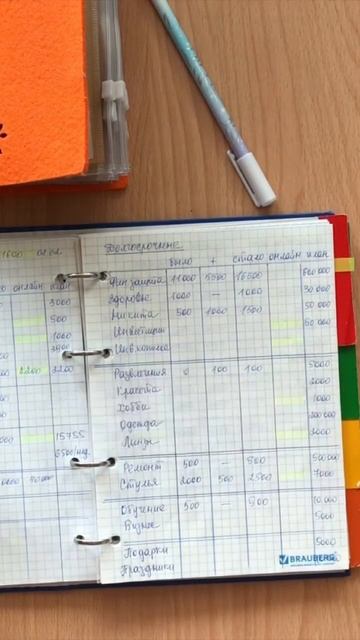 1600
онлайн план
3000
500
1000
2200 2200
15755
Долгосрочные
было + стало онлайн план
Фин защита 11000 5500 16500 600 000
Здоровье 1000 — 1000 30 000
Никита 500 1000 1500 50 000
Инвестиции 50 000
Развлечения 0 100 100 5000
Красота
Хобби 1000
Одежда
Линзы 3000
Ремонт 500 — 500
Стулья 2000 500 2500 7000
Обучение 500 — 500 10.000
5000
Подарки 5000
Праздники
BRAUBERG